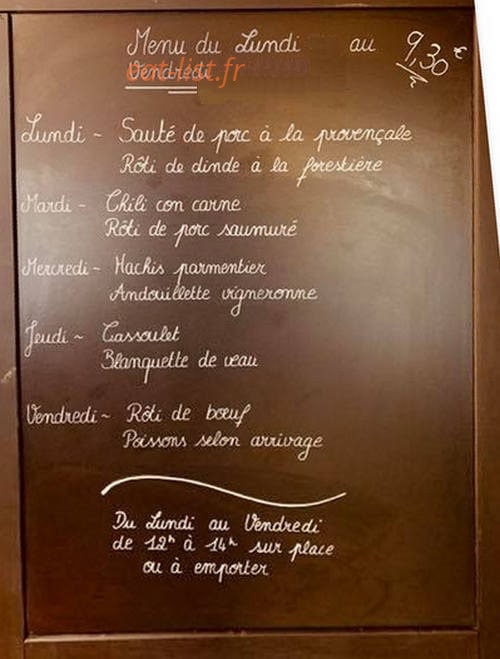 Menu du Lundi au
Vendredi
9,30 €
eat-list.fr
Lundi ~ Sauté de porc à la provençale
Rôti de dinde à la forestière
Mardi - Chili con carne
Rôti de porc saumuré
Mercredi - Hachis parmentier
Andouillette vigneronne
Jeudi ~ Cassoulet
Blanquette de veau
Vendredi ~ Rôti de bœuf
Poissons selon arrivage
Du Lundi au Vendredi
de 12h à 14h sur place
ou à emporter